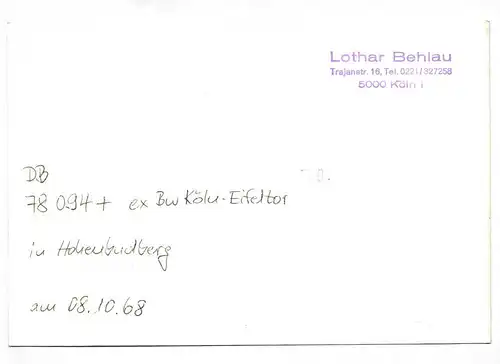 Lothar Behlau
Trajanstr. 16, Tel. 0221/327258
5000 Köln 1
DB
78 094+ ex Bw Köln-Eifeltor
in Hohenbudberg
am 08.10.68